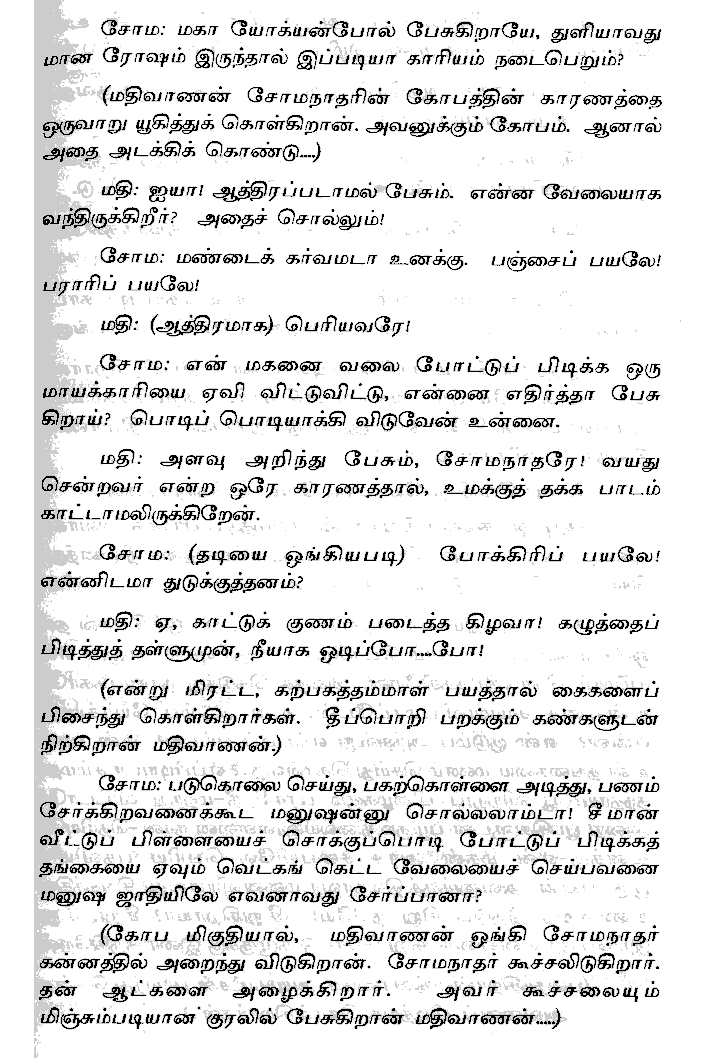 சோம: மகா யோக்யன்போல் பேசுகிறாயே, துளியாவது
மான ரோஷம் இருந்தால் இப்படியா காரியம் நடைபெறும்?
(மதிவாணன் சோமநாதரின் கோபத்தின் காரணத்தை
ஒருவாறு யூகித்துக் கொள்கிறான். அவனுக்கும் கோபம். ஆனால்
அதை அடக்கிக் கொண்டு....)
மதி: ஐயா! ஆத்திரப்படாமல் பேசும். என்ன வேலையாக
வந்திருக்கிறீர்? அதைச் சொல்லும்!
சோம: மண்டைக் கர்வமடா உனக்கு. பஞ்சைப் பயலே!
பராரிப் பயலே!
மதி: (ஆத்திரமாக) பெரியவரே!
சோம: என் மகனை வலை போட்டுப் பிடிக்க ஒரு
மாயக்காரியை ஏவி விட்டுவிட்டு, என்னை எதிர்த்தா பேசு
கிறாய்? பொடிப் பொடியாக்கி விடுவேன் உன்னை.
மதி: அளவு அறிந்து பேசும், சோமநாதரே! வயது
சென்றவர் என்ற ஒரே காரணத்தால், உமக்குத் தக்க பாடம்
காட்டாமலிருக்கிறேன்.
சோம: (தடியை ஓங்கியபடி) போக்கிரிப் பயலே!
என்னிடமா துடுக்குத்தனம்?
மதி: ஏ, காட்டுக் குணம் படைத்த கிழவா! கழுத்தைப்
பிடித்துத் தள்ளுமுன், நீயாக ஓடிப்போ....போ!
(என்று மிரட்ட, கற்பகத்தம்மாள் பயத்தால் கைகளைப்
பிசைந்து கொள்கிறார்கள். தீப்பொறி பறக்கும் கண்களுடன்
நிற்கிறான் மதிவாணன்.)
சோம: படுகொலை செய்து, பகற்கொள்ளை அடித்து, பணம்
சேர்க்கிறவனைக்கூட மனுஷன்னு சொல்லலாம்டா! சீமான்
வீட்டுப் பிள்ளையைச் சொக்குப்பொடி போட்டுப் பிடிக்கத்
தங்கையை ஏவும் வெட்கங் கெட்ட வேலையைச் செய்பவனை
மனுஷ ஜாதியிலே எவனாவது சேர்ப்பானா?
(கோப மிகுதியால், மதிவாணன் ஓங்கி சோமநாதர்
கன்னத்தில் அறைந்து விடுகிறான். சோமநாதர் கூச்சலிடுகிறார்.
தன் ஆட்களை அழைக்கிறார். அவர் கூச்சலையும்
மிஞ்சும்படியான குரலில் பேசுகிறான் மதிவாணன்.....)